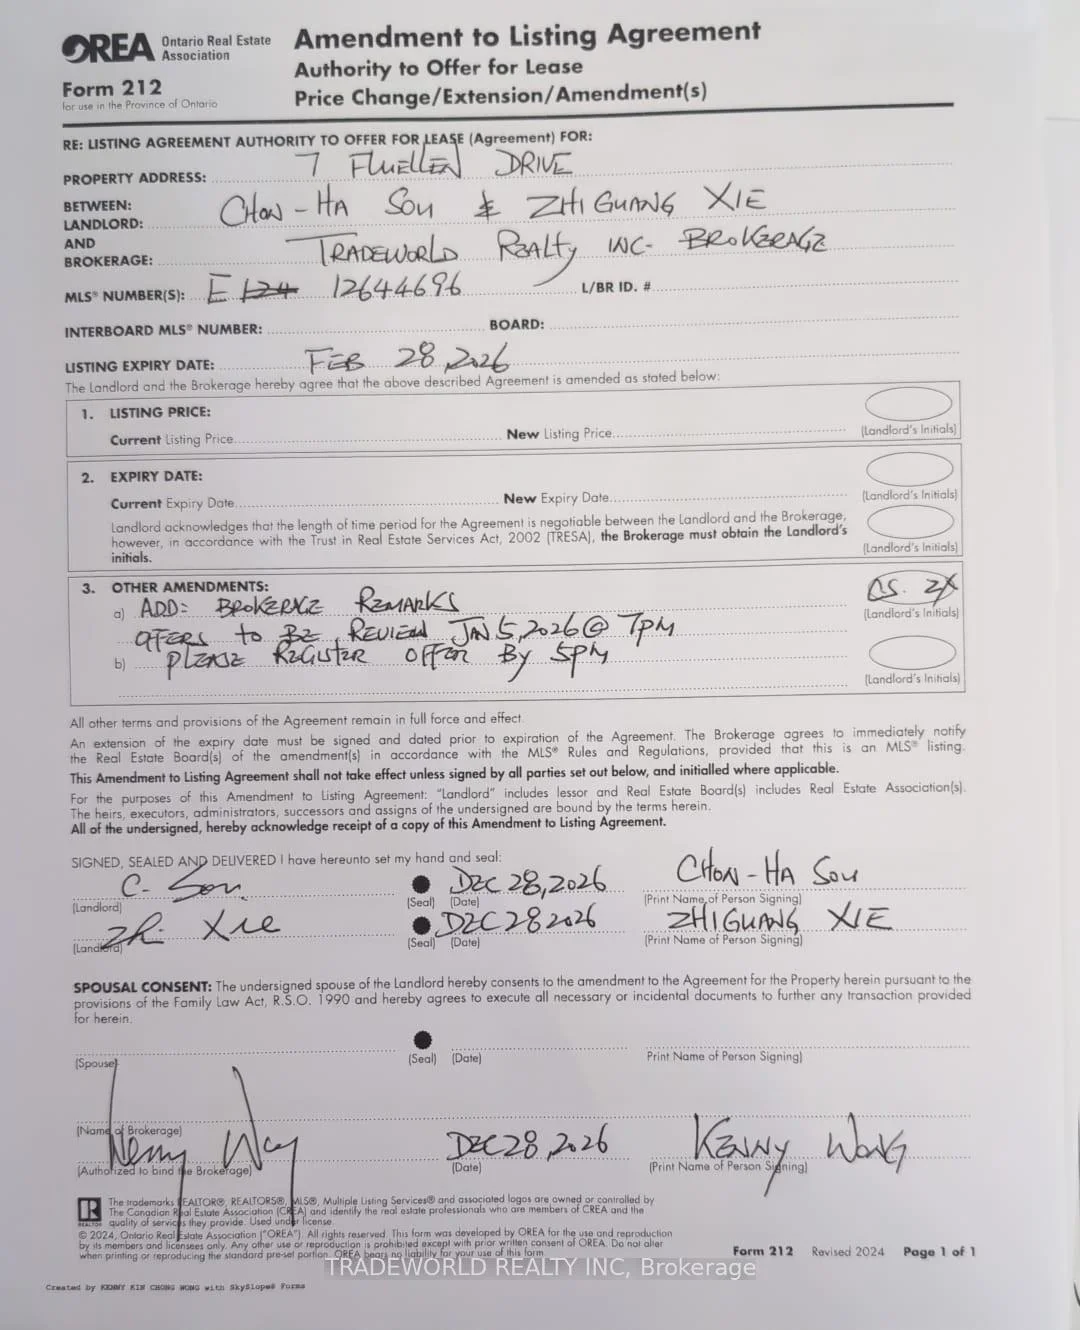 OREA Ontario Real Estate Association
Amendment to Listing Agreement
Authority to Offer for Lease
Price Change/Extension/Amendment(s)
Form 212
for use in the Province of Ontario
RE: LISTING AGREEMENT AUTHORITY TO OFFER FOR LEASE (Agreement) FOR:
PROPERTY ADDRESS: 7 FLUELLEN DRIVE
BETWEEN:
LANDLORD: CHON-HA SOU & ZHI GUANG XIE
AND
BROKERAGE: TRADEWORLD REALTY INC- BROKERAGE
MLS® NUMBER(S): E 124 12644696 L/BR ID. #
INTERBOARD MLS® NUMBER: BOARD:
LISTING EXPIRY DATE: FEB 28, 2026
The Landlord and the Brokerage hereby agree that the above described Agreement is amended as stated below:
1. LISTING PRICE:
Current Listing Price New Listing Price
(Landlord's Initials)
2. EXPIRY DATE:
Current Expiry Date New Expiry Date
(Landlord's Initials)
Landlord acknowledges that the length of time period for the Agreement is negotiable between the Landlord and the Brokerage,
however, in accordance with the Trust in Real Estate Services Act, 2002 (TRESA), the Brokerage must obtain the Landlord's
initials.
(Landlord's Initials)
3. OTHER AMENDMENTS:
a) ADD: BROKERAGE REMARKS
CS. ZX
(Landlord's Initials)
OFFERS to BE REVIEW JAN 5, 2026 @ 7PM
b) PLEASE REGISTER OFFER By 5PM
(Landlord's Initials)
All other terms and provisions of the Agreement remain in full force and effect.
An extension of the expiry date must be signed and dated prior to expiration of the Agreement. The Brokerage agrees to immediately notify
the Real Estate Board(s) of the amendment(s) in accordance with the MLS® Rules and Regulations, provided that this is an MLS® listing.
This Amendment to Listing Agreement shall not take effect unless signed by all parties set out below, and initialled where applicable.
For the purposes of this Amendment to Listing Agreement: "Landlord" includes lessor and Real Estate Board(s) includes Real Estate Association(s).
The heirs, executors, administrators, successors and assigns of the undersigned are bound by the terms herein.
All of the undersigned, hereby acknowledge receipt of a copy of this Amendment to Listing Agreement.
SIGNED, SEALED AND DELIVERED I have hereunto set my hand and seal:
C- Sou DEC 28, 2026 CHON-HA SOU
(Landlord) (Seal) (Date) (Print Name of Person Signing)
Zhi Xie DEC 28 2026 ZHIGUANG XIE
(Landlord) (Seal) (Date) (Print Name of Person Signing)
SPOUSAL CONSENT: The undersigned spouse of the Landlord hereby consents to the amendment to the Agreement for the Property herein pursuant to the
provisions of the Family Law Act, R.S.O. 1990 and hereby agrees to execute all necessary or incidental documents to further any transaction provided
for herein.
(Spouse) (Seal) (Date) Print Name of Person Signing)
(Name of Brokerage)
DEC 28, 2026 KENNY WONG
(Authorized to bind the Brokerage) (Date) (Print Name of Person Signing)
The trademarks REALTOR®, REALTORS®, MLS®, Multiple Listing Services® and associated logos are owned or controlled by
The Canadian Real Estate Association (CREA) and identify the real estate professionals who are members of CREA and the
quality of services they provide. Used under license.
© 2024, Ontario Real Estate Association ("OREA"). All rights reserved. This form was developed by OREA for the use and reproduction
by its members and licensees only. Any other use or reproduction is prohibited except with prior written consent of OREA. Do not alter
when printing or reproducing the standard pre-set portion. OREA bears no liability for your use of this form.
Form 212 Revised 2024 Page 1 of 1
TRADEWORLD REALTY INC, Brokerage
Created by KENNY KIN CHONG WONG with SkySlope® Forms